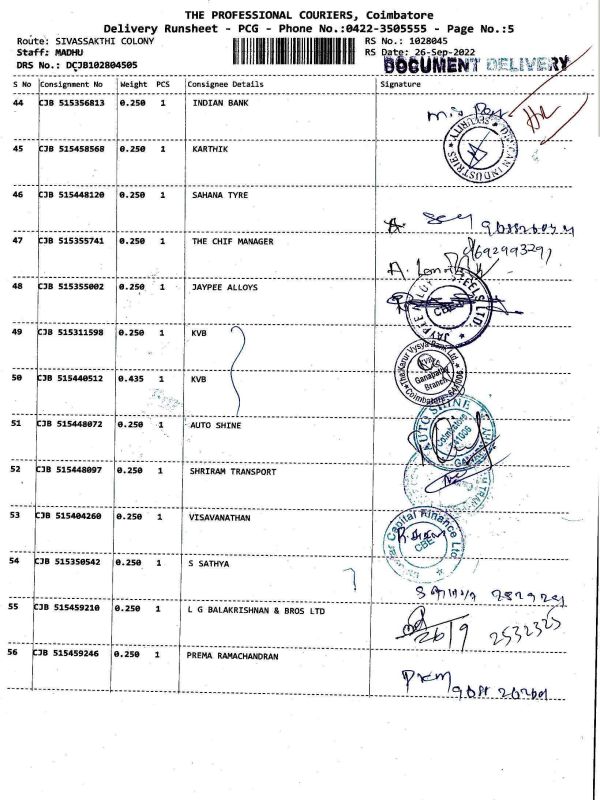 THE PROFESSIONAL COURIERS, Coimbatore
Delivery Runsheet - PCG - Phone No.:0422-3505555 - Page No.:5
Route: SIVASSAKTHI COLONY RS No.: 1028045
Staff: MADHU RS Date: 26-Sep-2022
DRS No.: DCJB102804505 DOCUMENT DELIVERY
S No Consignment No Weight PCS Consignee Details Signature
44 CJB 515356813 0.250 1 INDIAN BANK
45 CJB 515458568 0.250 1 KARTHIK
46 CJB 515448120 0.250 1 SAHANA TYRE
47 CJB 515355741 0.250 1 THE CHIF MANAGER
48 CJB 515355002 0.250 1 JAYPEE ALLOYS
JAYPEE ALLOY STEELS LTD. CBE
49 CJB 515311598 0.250 1 KVB
The Karur Vysya Bank Ltd. Ganapathy Branch Coimbatore-641006
50 CJB 515440512 0.435 1 KVB
51 CJB 515448072 0.250 1 AUTO SHINE
AUTO SHINE Coimbatore
52 CJB 515448097 0.250 1 SHRIRAM TRANSPORT
53 CJB 515404260 0.250 1 VISAVANATHAN
Capital Finance Ltd. CBE
54 CJB 515350542 0.250 1 S SATHYA
55 CJB 515459210 0.250 1 L G BALAKRISHNAN & BROS LTD
26/9 2532325
56 CJB 515459246 0.250 1 PREMA RAMACHANDRAN